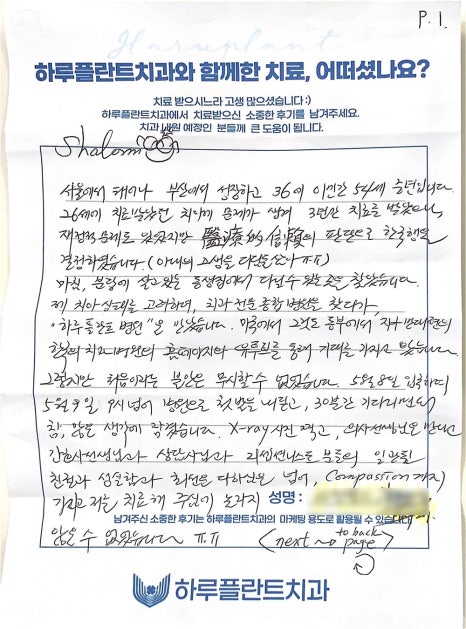 P. 1.
Haruplant
하루플란트치과와 함께한 치료, 어떠셨나요?
치료 받으시느라 고생 많으셨습니다 :)
하루플란트치과에서 치료받으신 소중한 후기를 남겨주세요.
치과 내원 예정인 분들께 큰 도움이 됩니다.
Shalom
서울에서 태어나 부산에서 성장하고 36에 이민간 54세 중년입니다.
26세에 치료받았던 치아에 문제가 생겨 3년간 치료를 받았으나,
재정적 문제도 있었지만 醫療的 信賴의 판단으로 한국행을
결정하였습니다. (아내의 고생을 다 ㅠㅠ)
마침, 분당에 살고 있는 동생집에서 다닐 수 있는 곳을 찾았습니다.
제 치아 상태를 고려하며, 치과 전문 종합 병원을 찾다가,
"하루플란트 병원"을 만났습니다. 미국에서 그것도 동부에서 지구 반대편의
한국의 치과병원의 홈페이지와 유투브를 통해 기대를 가지고 왔습니다.
그렇지만 처음이라는 불안은 무시할 수 없었습니다. 5월 8일 입국하며
5월 9일 9시 넘어 병원으로 첫 발을 내딛고, 30분간 기다리면서
참, 많은 생각에 잠겼습니다. X-ray 사진 찍고, 의사선생님을 만나고
간호사선생님과 상담사님과 리셉션니스트 분들의 일관된
친절과 성실함과 최선을 다하심을 넘어, Compassion 까지
가지고 저를 치료해 주심에 놀라지
성명 :
남겨주신 소중한 후기는 하루플란트치과의 마케팅 용도로 활용될 수 있습니다.
않을 수 없었습니다 ㅠ.ㅠ
(next → to back page)
하루플란트치과